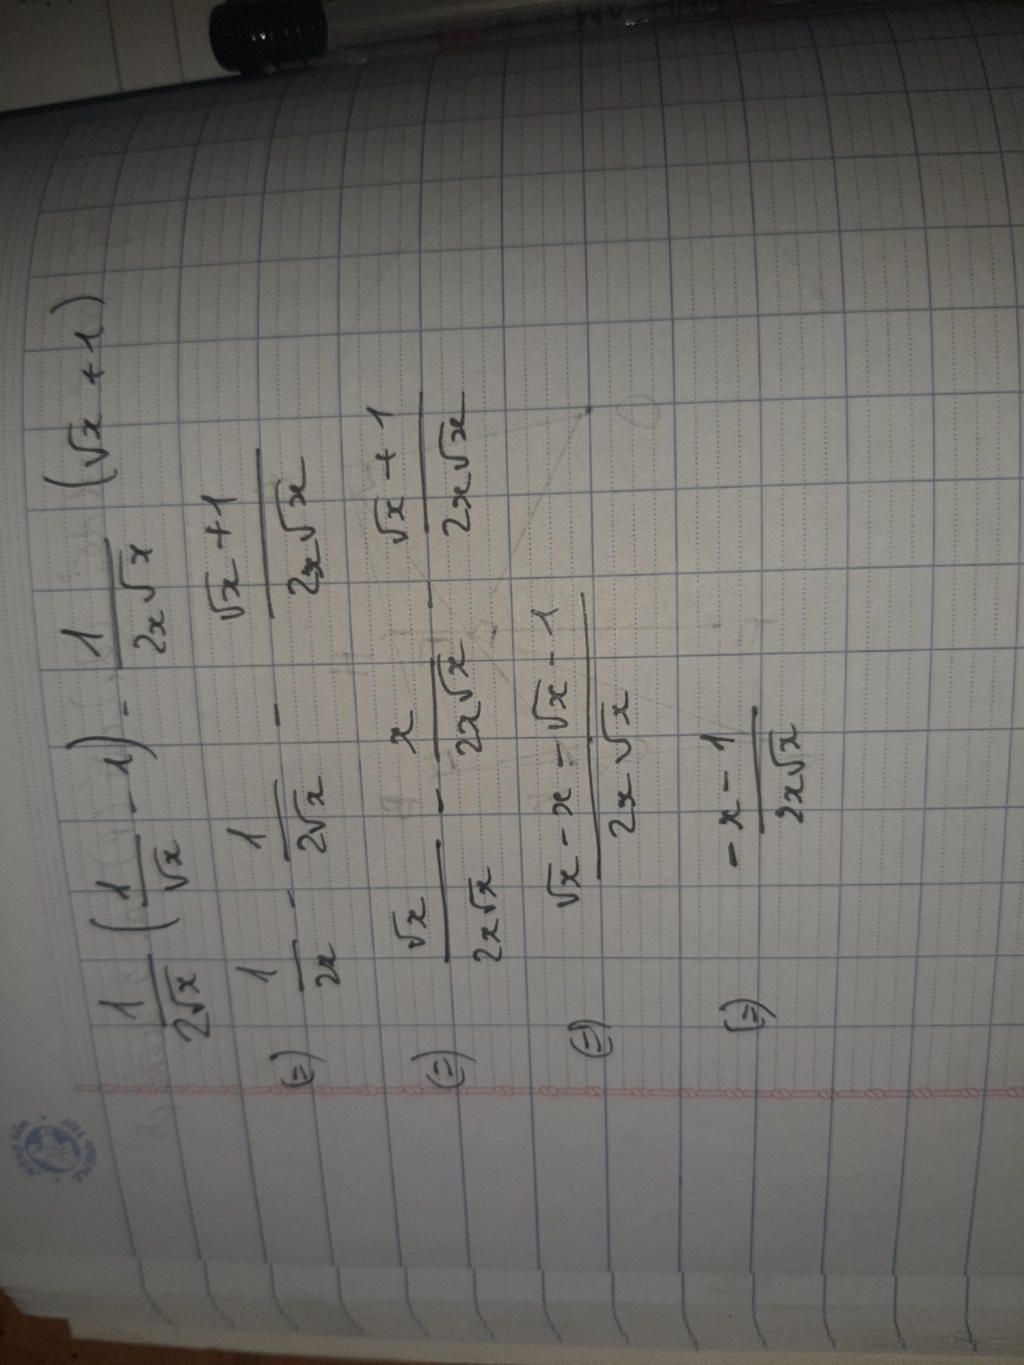 1/(2√x) (1/√x - 1) - 1/(2x√x) (√x + 1)
(=) 1/(2x) - 1/(2√x) - (√x + 1)/(2x√x)
(=) √x/(2x√x) - x/(2x√x) - (√x + 1)/(2x√x)
(=) (√x - x - √x - 1)/(2x√x)
(=) (-x - 1)/(2x√x)